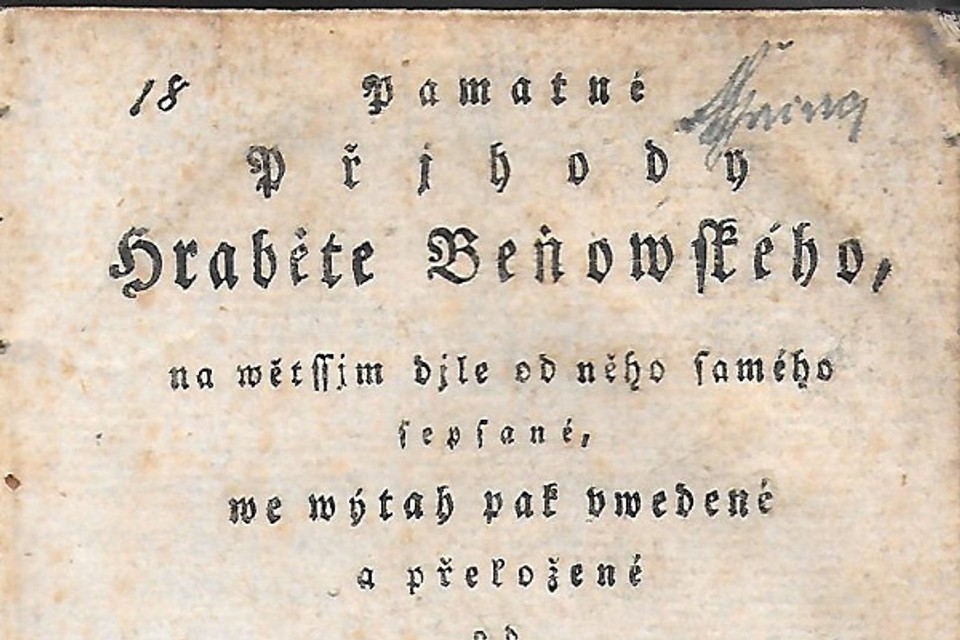 18
Pamatné
Přjhody
Hraběte Beňowského,
na wětssjm djle od něho samého
sepsané,
we wýtah pak vwedené
a přeložené
od